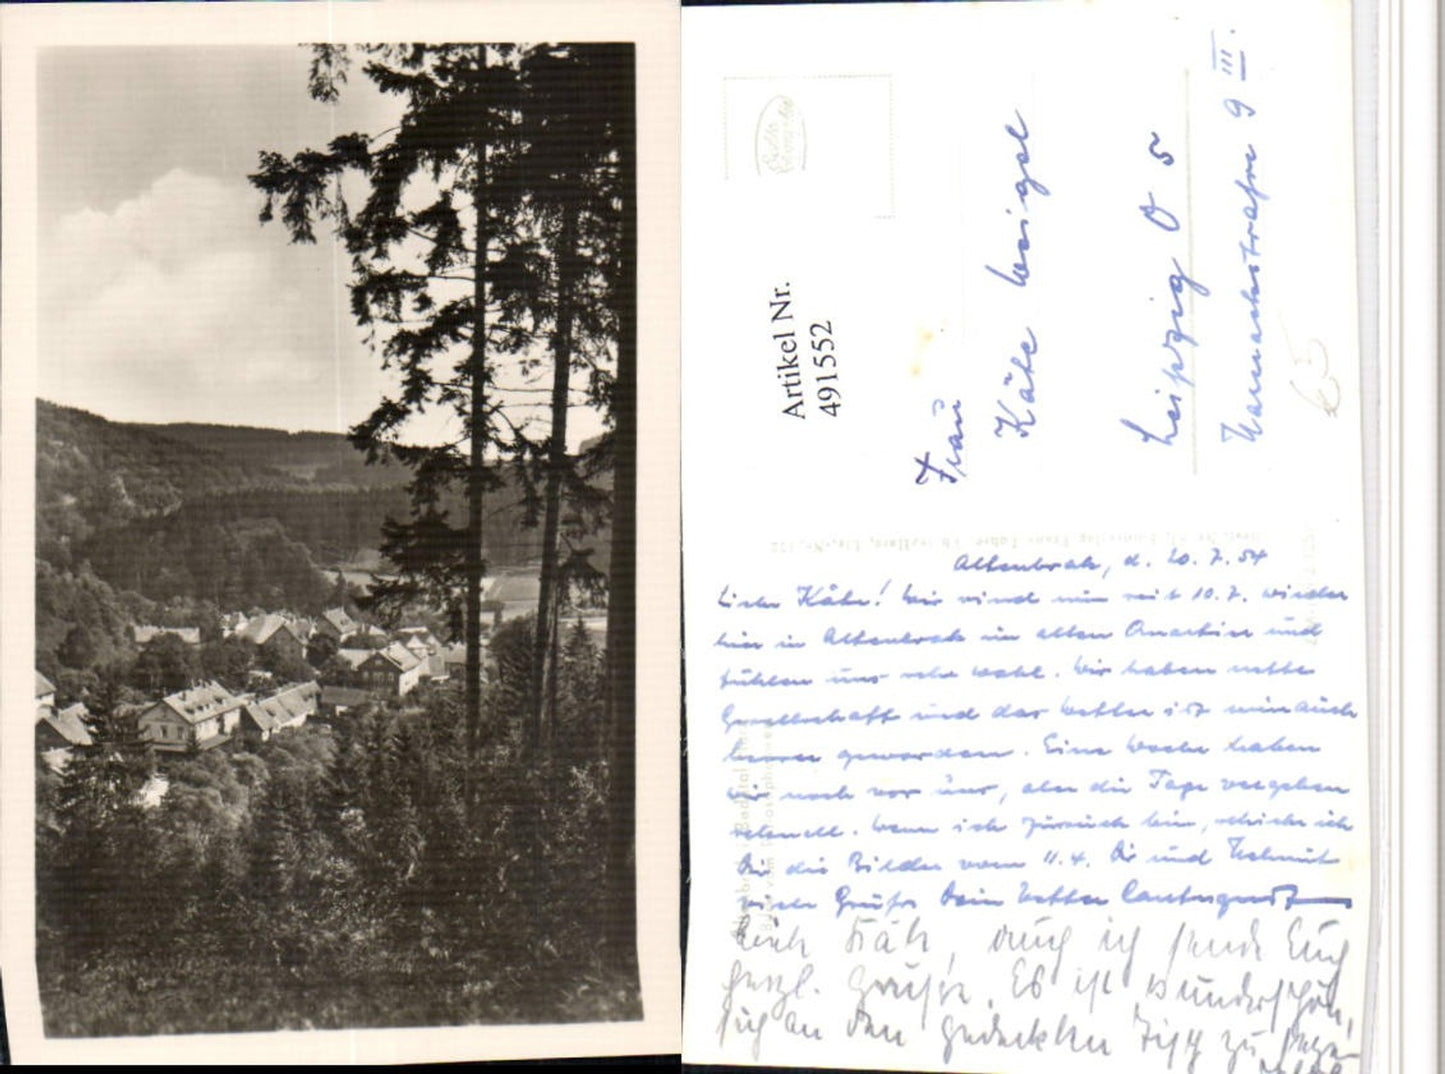 Artikel Nr.
491552
Frau
Käte Weigel
Leipzig O 5
9 III.
Altenbrak, d. 20.7.54
Liebe Käte! Wir sind nun seit 10.7. wieder
hier in Altenbrak im alten Quartier und
fühlen uns sehr wohl. Wir haben nette
Gesellschaft und das Wetter ist nun auch
besser geworden. Eine Woche haben
wir noch vor uns, aber die Tage vergehen
schnell. Wenn ich zurück bin, schicke ich
Dir die Bilder vom 11.4. Dir und Helmut
viele Grüße Dein Vetter
Käte, auch ich sende Euch
herzl. Grüße. Es ist wunderschön,
sich an den gedeckten Tisch zu